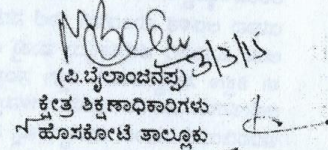 3/3/15
(ಪಿ.ಬೈಲಾಂಜಿನಪ್ಪ)
ಕ್ಷೇತ್ರ ಶಿಕ್ಷಣಾಧಿಕಾರಿಗಳು
ಹೊಸಕೋಟೆ ತಾಲ್ಲೂಕು